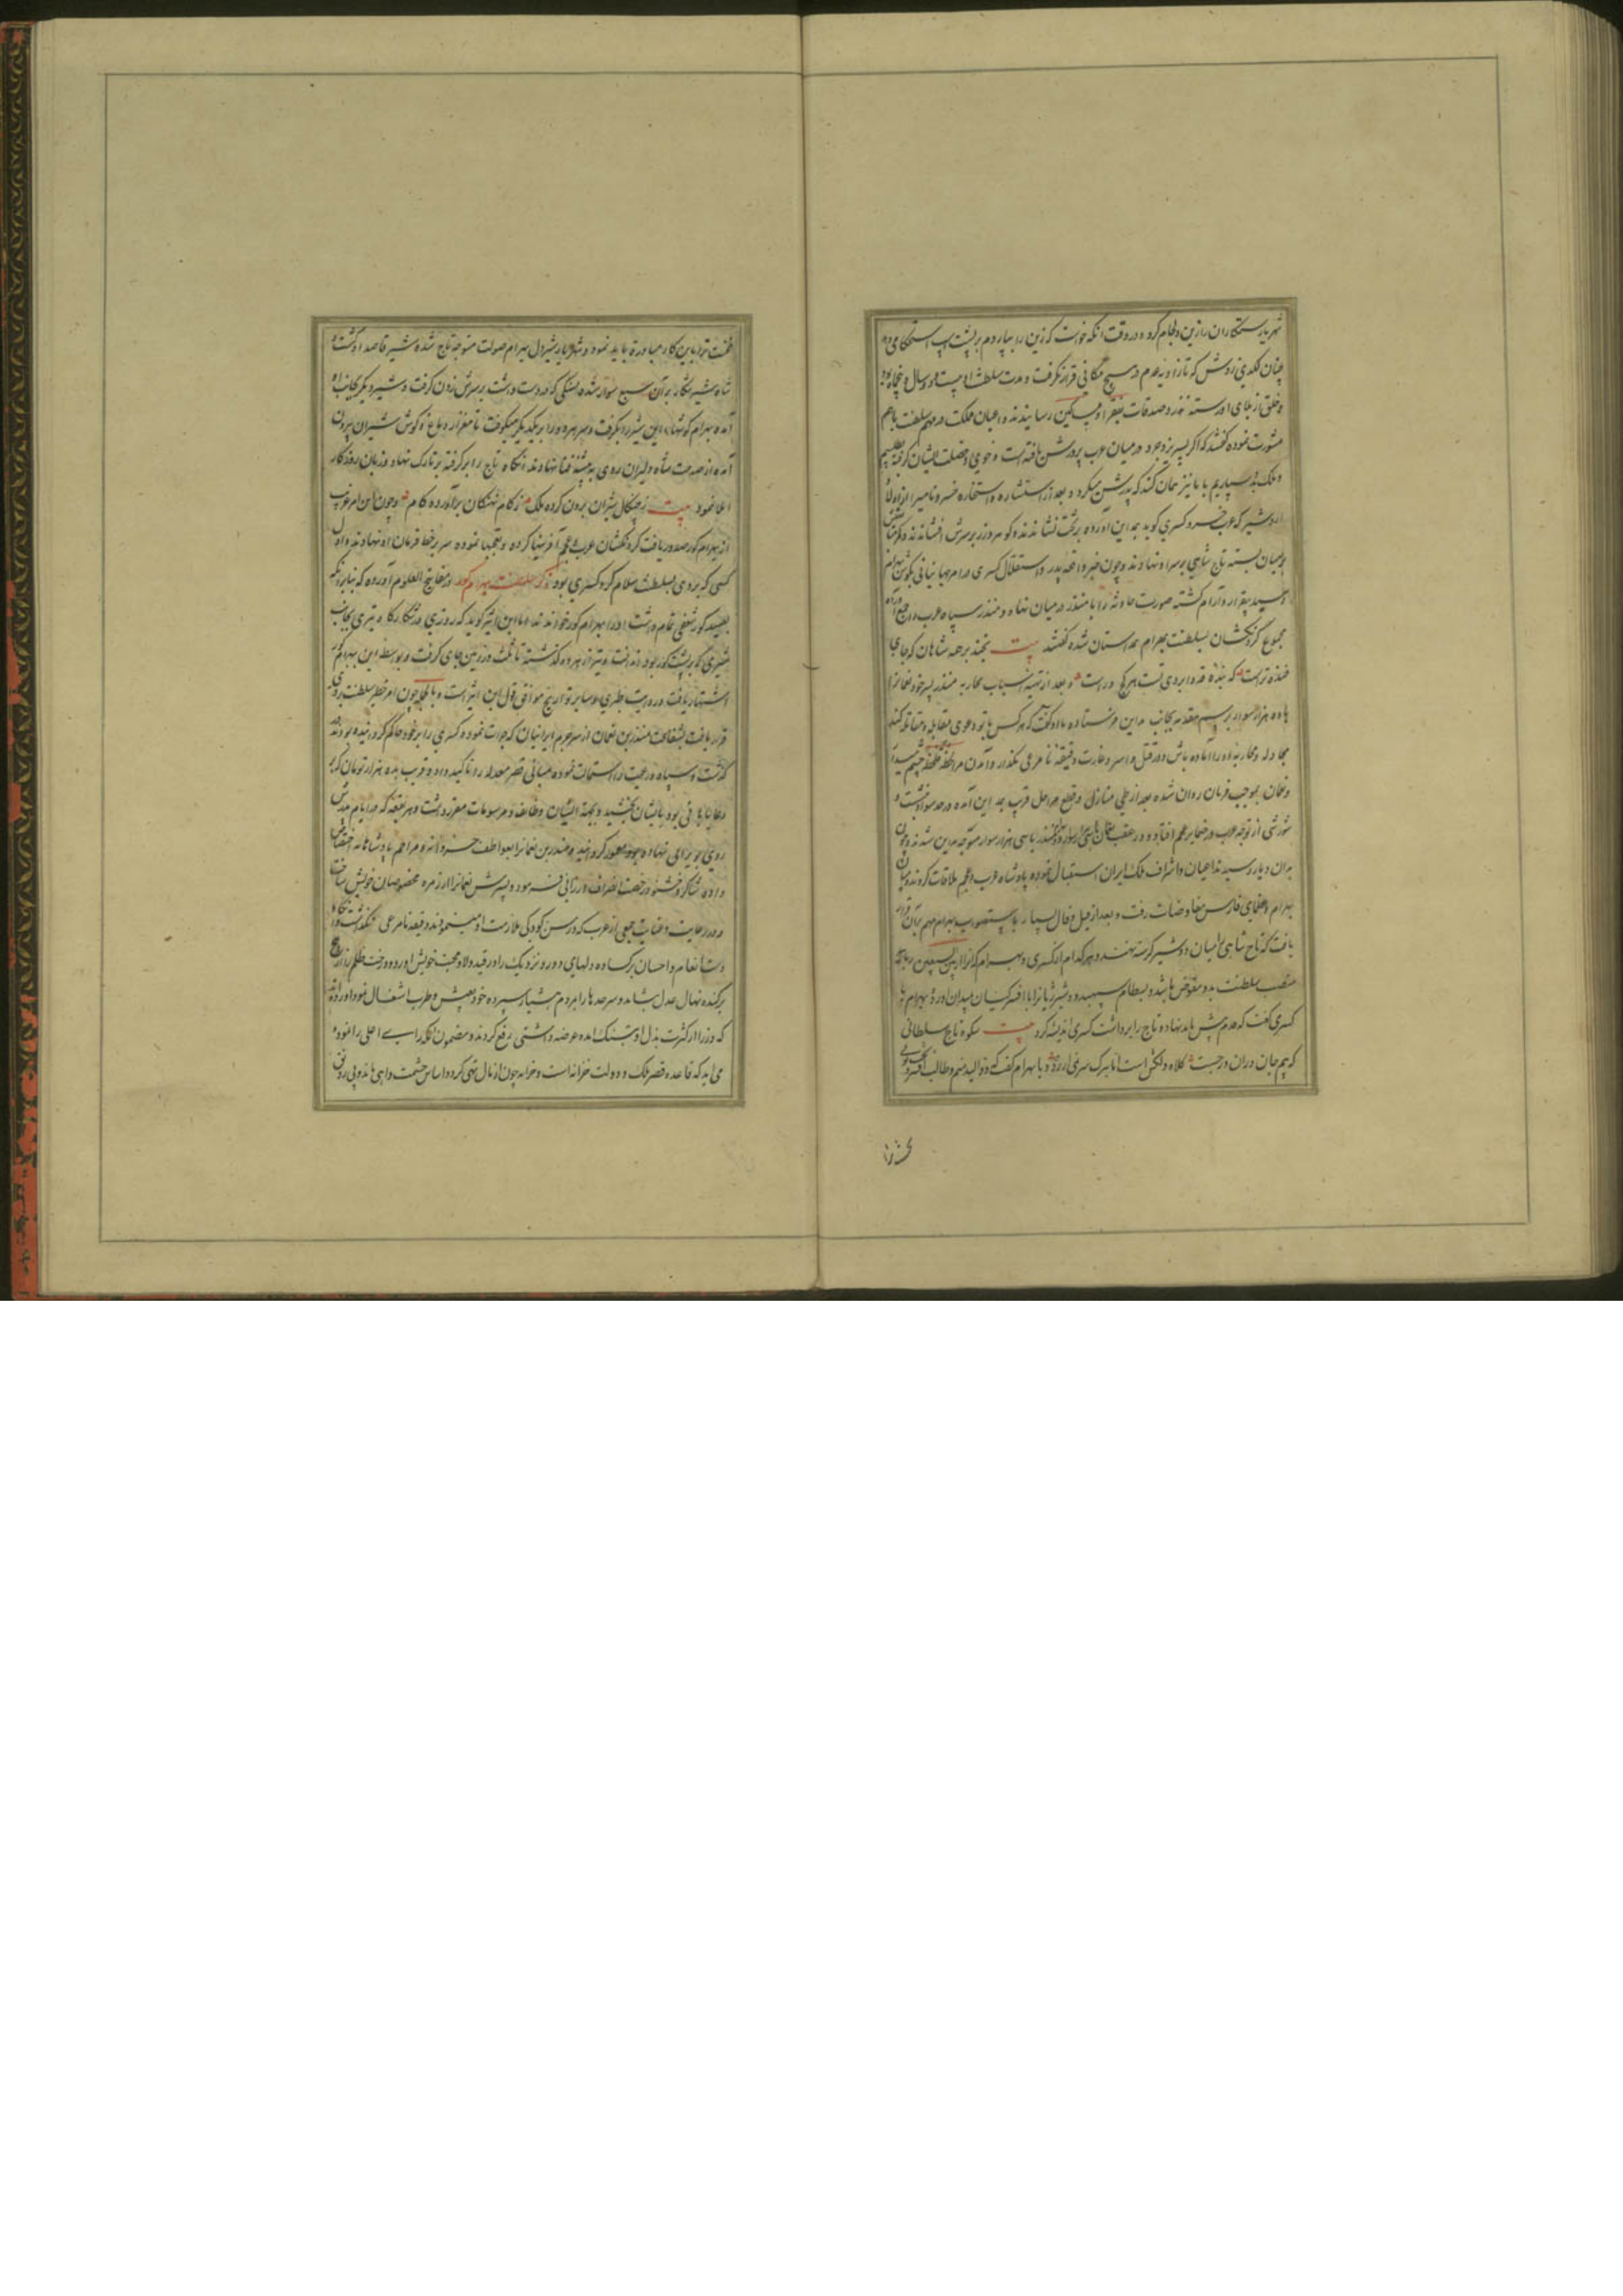 شهریار ستمکاران را زین و لجام کرد و در وقت آنکه خواست که زین را بپاردم بر پشت اسب استحکام دهد
چنان لکدی زدش که تا زاویه عدم در هیچ مکانی قرار نکرفت و مدت سلطنت او بیست و دو سال و پنجماه بود
و خلق از بلای او رسته نذر و صدقات بفقرا و مساکین رسانیدند و اعیان مملکت در مهم سلطنت باهم
مشورت نموده کفتند که اکر پسر یزدجرد در میان عرب پرورش یافته است و خوی و خصلت ایشان کرفته
و ملک بدو سپاریم با ما نیز همان کند که پدرش میکرد و بعد از استشاره و استخاره خسرو نامی را از اولاد
اردشیر که عرب خسرو کسری کوید بمداین آورده بر تخت نشاندند و کوهر و زر بر سرش افشاندند و کمر
بر میان بسته تاج شاهی بر سر او نهادند و چون خبر واقعه پدر و استقلال کسری در امر جهانبانی بکوش بهرام
رسید بیقرار و آرام کشته صورت حادثه را با منذر در میان نهاد و منذر سپاه عرب را جمع آورده
مجموع کردنکشان بسلطنت بهرام همداستان شده کفتند بیت بخند بر همه شاهان که جای
خنده تراست که بنده قد و ابروی تست هر کجا و راست و بعد از تهیه اسباب محاربه منذر پسر خود نعمانرا
با ده هزار سوار برسم مقدمه بجانب مداین فرستاده با او کفت که هر کس با تو دعوی مقابله و مقاتله کند
مجادله و محاربه او را آماده باش و در قتل و اسر و غارت دقیقه نامرعی نکذار و آمدن مرا لحظه لحظه چشم میدار
و نعمان بموجب فرمان روان شده بعد از طی منازل و قطع مراحل قریب بمداین آمده در حد سواد نشست و
شورشی از توجه عرب در ضمایر عجم افتاد و در عقب نعمان منذر با سی هزار سوار متوجه مداین شدند و چون
بدان دیار رسیدند اعیان و اشراف ملک ایران استقبال نموده پادشاه عرب و عجم ملاقات کردند و میان
بهرام و عظمای فارس مفاوضات رفت و بعد از قیل و قال بسیار باستصواب بهرام مهم بران قرار
یافت که تاج شاهی را میان دو شیر کرسنه نهند و هر کدام از کسری و بهرام که انرا از بین السبعین رباید
منصب سلطنت بدو مفوض باشد و بسطام سپهبد دو شیر ژیانرا با افسر کیان بمیدان آورد بهرام با
کسری کفت که قدم پیش باید نهاد و تاج را برداشت کسری اندیشه کرد بیت شکوه تاج سلطانی
که بیم جان دران درجست کلاه دلکش است اما بترک سر نمی ارزد و با بهرام کفت که تو والی منم و طالب افسر تویی
نخست ترا باین کار مبادرة باید نمود و شهریار شیردل بهرام صولت متوجه تاج شده شیر قاصد او کشت و
شاه شیرشکار بر آن سبع سوار شده بسنکی که در دست داشت بر سرش زدن کرفت و شیر دیکر بجانب او
آمده بهرام کوشهاء این شیر را بکرفت و سر هر دو را بر یکدیکر میکوفت تا مغز از دماغ و کوش شیران بیرون
آمده از صدمت شاه دلیران روی به بیشه فنا نهادند انکاه تاج را برکرفته بر تارک نهاد و زبان روزکار
املا نمود بیت ز چنکال شیران برون کرده ملک ز کام نهنکان برآورده کام و چون این امر غریب
از بهرام کور صدور یافت کردنکشان عرب و عجم آفرینها کرده و تعجبها نموده سر بر خط فرمان او نهادند و اول
کسی که بر وی بسلطنت سلام کرد کسری بود ذکر سلطنت بهرام کور در مفاتیح العلوم آورده که بنابر آنکه
بصید کور شغفی تمام داشت او را بهرام کور خواندند اما ابن اثیر کوید که روزی در شکارکاه تیری بجانب
شیری که بر پشت کور بود انداخت و تیر از هر دو کذشته تا ثلث در زمین جای کرفت و بواسطه این بهرام کور
اشتهار یافت و روایت طبری و سایر تواریخ موافق قول ابن اثیر است و بالجمله چون امر خطیر سلطنت بر وی
قرار یافت بشفاعت منذر بن نعمان از سر جرم ایرانیان که جرات نموده کسری را بر خود حاکم کردانیده بودند
کذشت و سپاه و رعیت را استمالت نموده مبانی قصر معدله را تاکید داد و قریب بده هزار تومان که بر
رعایا باقی بود بایشان بخشید و بجهة ایشان وظایف و مرسومات مقرر داشت و هر بقعه که در ایام پدرش
روی بویرانی نهاده بود معمور کردانید و منذر بن نعمانرا بعواطف خسروانه و مراحم پادشاهانه اختصاص
داده شاکر و خشنود رخصت انصراف ارزانی فرمود و پسرش نعمانرا از زمره مخصوصان خویش ساخت
و در رعایت و عنایت جمعی از عرب که در سن کودکی ملازمت او مینمودند دقیقه نامرعی نکذاشت و آنکاه
دست بانعام و احسان برکشاده دلهای دور و نزدیک را در قید ولا و محبت خویش آورد و درخت ظلم را از بیخ
برکنده نهال عدل بنشاند و سرحدها را بمردم هشیار سپرده خود بعیش و طرب اشتغال نمود و آورده اند
که وزرا از کثرت بذل او بتنک آمده عرضه داشتی رفع کردند و مضمون آنکه رای اعلی را نموده
می آید که قاعده قصر ملک و دولت خزانه است و خزانه چون از مال تهی کردد اساس حشمت واهی ماند و بی رونق
نخست ترا